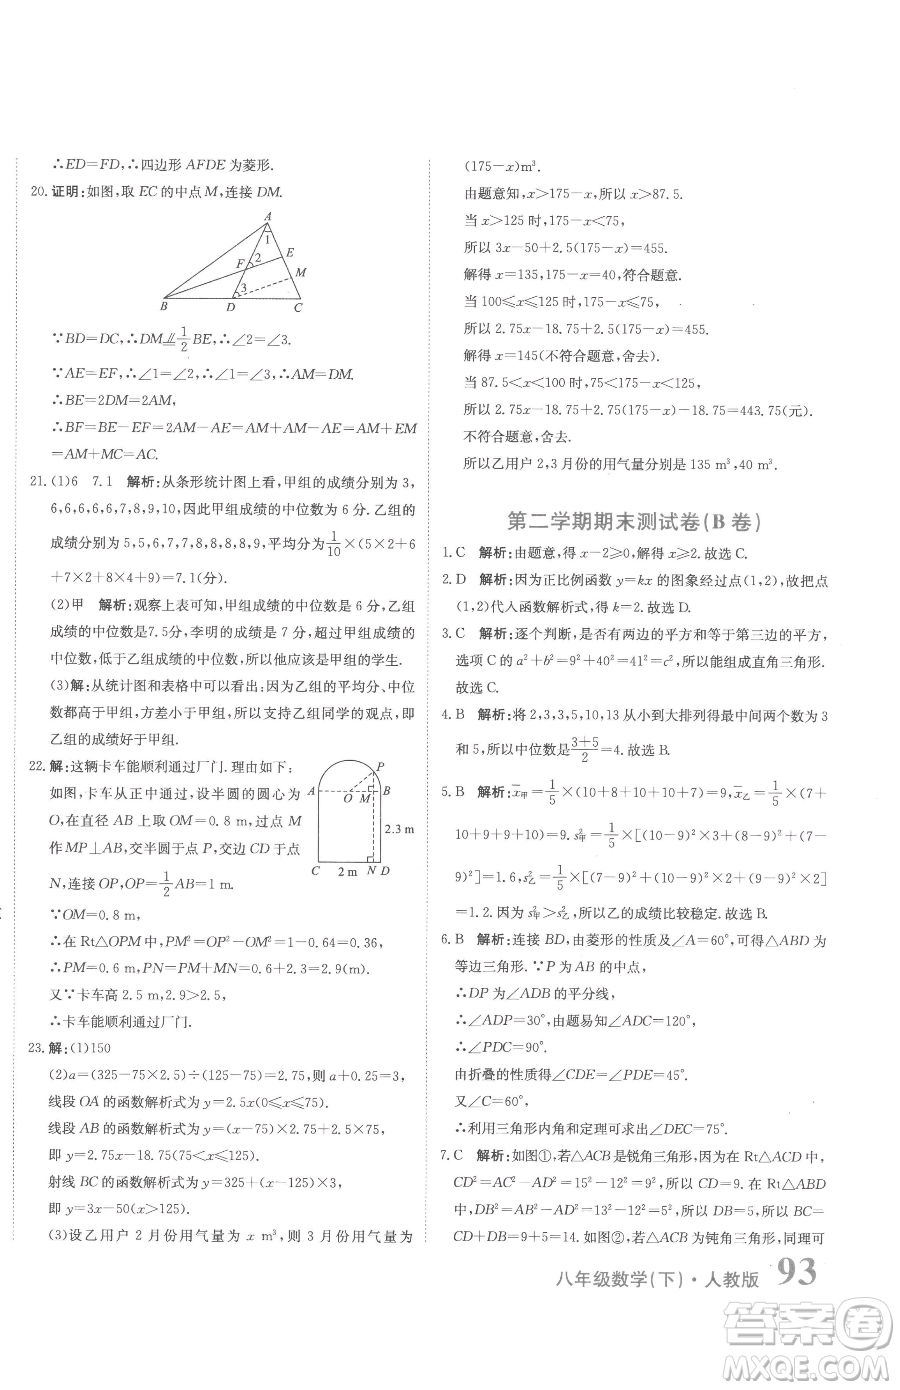 ∴ED=FD,∴四边形 AFDE 为菱形.
20. 证明:如图,取 EC 的中点 M,连接 DM.
A
1
F
2
E
M
3
B
D
C
∵BD=DC,∴DM⫽1/2BE,∴∠2=∠3.
∵AE=EF,∴∠1=∠2,∴∠1=∠3,∴AM=DM.
∴BE=2DM=2AM,
∴BF=BE-EF=2AM-EF=AM+AM-AE=AM+EM
=AM+MC=AC.
21. (1)6 7.1 解析:从条形统计图上看,甲组的成绩分别为 3,
6,6,6,6,6,7,8,9,10,因此甲组中位数为 6 分.乙组的
成绩分别为 5,5,6,7,7,8,8,8,8,9,平均分为1/10×(5×2+6
+7×2+8×4+9)=7.1(分).
(2)甲 解析:观察上表可知,甲组成绩的中位数是 6 分,乙组
成绩的中位数是7.5分,李明的成绩是 7 分,超过甲组成绩的
中位数,低于乙组成绩的中位数,所以李明是甲组的学生.
(3)解:从统计图和表格中可以看出:乙组的平均分、中位
数都高于甲组,方差小于甲组,所以支持乙组同学的观点,即
乙组的成绩好于甲组.
22. 解:这辆卡车能顺利通过厂门.理由如下:
如图,卡车从正中通过,设半圆的圆心为
O,在直径 AB 上取 OM=0.8 m,过点 M
作 MP⊥AB,交半圆于点 P,交 CD 于点
N,连接 OP,OP=1/2AB=1 m.
P
A
O
M
B
2.3 m
C
2 m
N
D
∵OM=0.8 m,
∴在 Rt△OPM 中,PM²=OP²-OM²=1-0.64=0.36,
∴PM=0.6 m,PN=PM+MN=0.6+2.3=2.9(m).
又∵卡车高 2.5 m,2.9>2.5,
∴卡车能顺利通过厂门.
23. 解:(1)150
(2)a=(325-75×2.5)÷(125-75)=2.75,则 a+0.25=3,
线段 OA 的函数解析式为 y=2.5x(0≤x≤75),
线段 AB 的函数解析式为 y=(x-75)×2.75+2.5×75,
即 y=2.75x-18.75(75<x≤125),
射线 BC 的函数解析式为 y=325+(x-125)×3,
即 y=3x-50(x>125).
(3)设乙用户 2 月份用气量为 x m³,则 3 月份用气量为
(175-x)m³.
由题意知,x>175-x,所以 x>87.5.
当 x>125 时,175-x<75,
所以 3x-50+2.5(175-x)=455.
解得 x=135,175-x=40,符合题意.
当 100≤x≤125 时,175-x≤75,
所以 2.75x-18.75+2.5(175-x)=455.
解得 x=145(不符合题意,舍去).
当 87.5<x<100 时,75<175-x<125,
所以 2.75×175-18.75-18.75=443.75(元).
不符合题意,舍去.
所以乙用户 2,3 月份的用气量分别是 135 m³,40 m³.
第二学期期末测试卷(B 卷)
1. C 解析:由题意,得 x-2≥0,解得 x≥2.故选 C.
2. D 解析:因为正比例函数 y=kx 的图象经过点(1,2),把点
(1,2)代入函数解析式,得 k=2.故选 D.
3. C 解析:逐个判断,是否有两边的平方和等于第三边的平方,
选项 C 的 a²+b²=9²+40²=41²=c²,所以能组成直角三角形.
故选 C.
4. B 解析:将 2,3,3,5,10,13 从小到大排列得最中间两个数为 3
和 5,所以中位数是(3+5)/2=4.故选 B.
5. B 解析:x̄甲=1/5×(10+8+10+10+7)=9,x̄乙=1/5×(7+
10+9+9+10)=9.s²甲=1/5×[(10-9)²×3+(8-9)²+(7-
9)²]=1.6,s²乙=1/5×[(7-9)²+(9-9)²×2+(10-9)²×2]
=1.2.因为 s²甲>s²乙,所以乙的成绩比较稳定.故选 B.
6. B 解析:连接 BD,由菱形的性质及∠A=60°,可得△ABD 为
等边三角形.∵P 为 AB 的中点,
∴DP 为∠ADB 的平分线,
∴∠ADP=30°,由题易知∠ADC=120°,
∴∠CDP=90°.
由折叠的性质得∠CDE=∠PDE=45°.
又∠C=60°,
∴利用三角形内角和定理可求出∠DEC=75°.
7. C 解析:如图①,若△ACB是锐角三角形,在Rt△ACD 中,
CD²=AC²-AD²=15²-12²=9²,所以CD=9.在 Rt△ABD
中,DB²=AB²-AD²=13²-12²=5²,所以 DB=5,所以 BC=
CD+DB=9+5=14.如图②,若△ACB 为钝角三角形,同理可
八年级数学(下)·人教版 93
答案圈
MXQE.COM